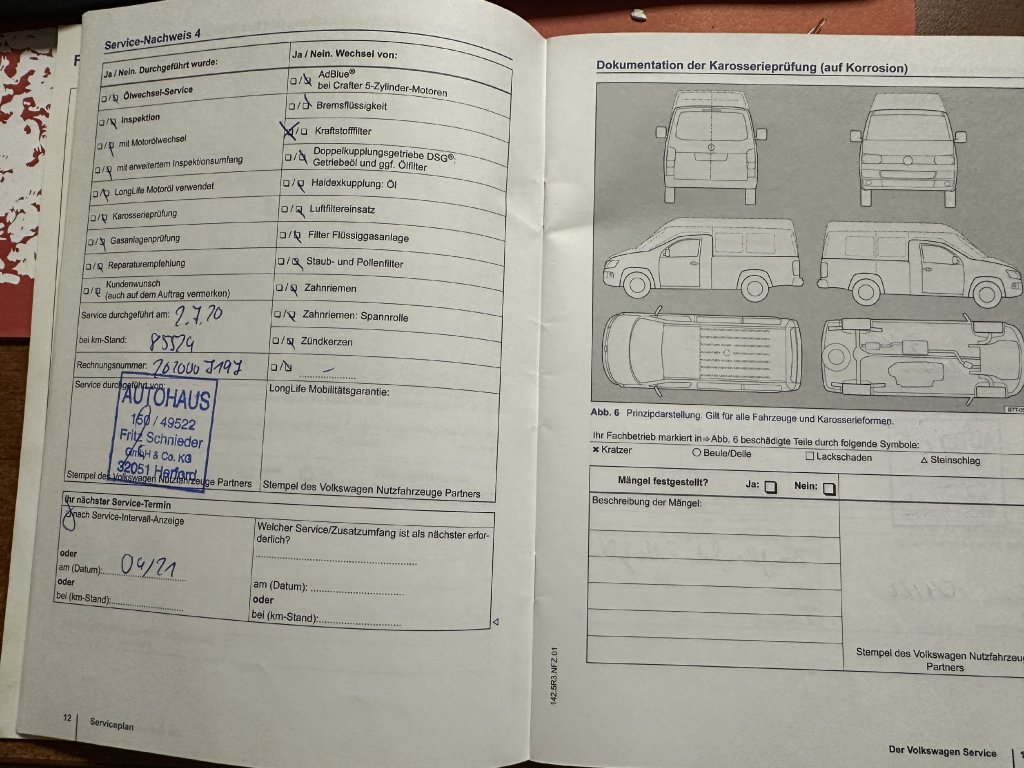 Service-Nachweis 4
Ja / Nein. Durchgeführt wurde:
Ja / Nein. Wechsel von:
Ölwechsel-Service
AdBlue®
bei Crafter 5-Zylinder-Motoren
Inspektion
Bremsflüssigkeit
mit Motorölwechsel
Kraftstofffilter
mit erweitertem Inspektionsumfang
Doppelkupplungsgetriebe DSG®:
Getriebeöl und ggf. Ölfilter
LongLife Motoröl verwendet
Haldexkupplung: Öl
Karosserieprüfung
Luftfiltereinsatz
Gasanlagenprüfung
Filter Flüssiggasanlage
Reparaturempfehlung
Staub- und Pollenfilter
Kundenwunsch
(auch auf dem Auftrag vermerken)
Zahnriemen
Service durchgeführt am: 2.7.20
Zahnriemen: Spannrolle
bei km-Stand: 85524
Zündkerzen
Rechnungsnummer:
Service durchgeführt von:
LongLife Mobilitätsgarantie:
AUTOHAUS
150 / 49522
Fritz Schnieder
GmbH & Co. KG
32051 Herford
Stempel des Volkswagen Nutzfahrzeuge Partners
Stempel des Volkswagen Nutzfahrzeuge Partners
Ihr nächster Service-Termin
nach Service-Intervall-Anzeige
oder
am (Datum): 04/21
oder
bei (km-Stand):
Welcher Service/Zusatzumfang ist als nächster erfor-
derlich?
am (Datum):
oder
bei (km-Stand):
12
Serviceplan
Dokumentation der Karosserieprüfung (auf Korrosion)
Abb. 6 Prinzipdarstellung. Gilt für alle Fahrzeuge und Karosserieformen.
Ihr Fachbetrieb markiert in ⇒ Abb. 6 beschädigte Teile durch folgende Symbole:
× Kratzer
○ Beule/Delle
□ Lackschaden
△ Steinschlag
Mängel festgestellt? Ja: Nein:
Beschreibung der Mängel:
Stempel des Volkswagen Nutzfahrzeu
Partners
142.5R3.NFZ.01
Der Volkswagen Service